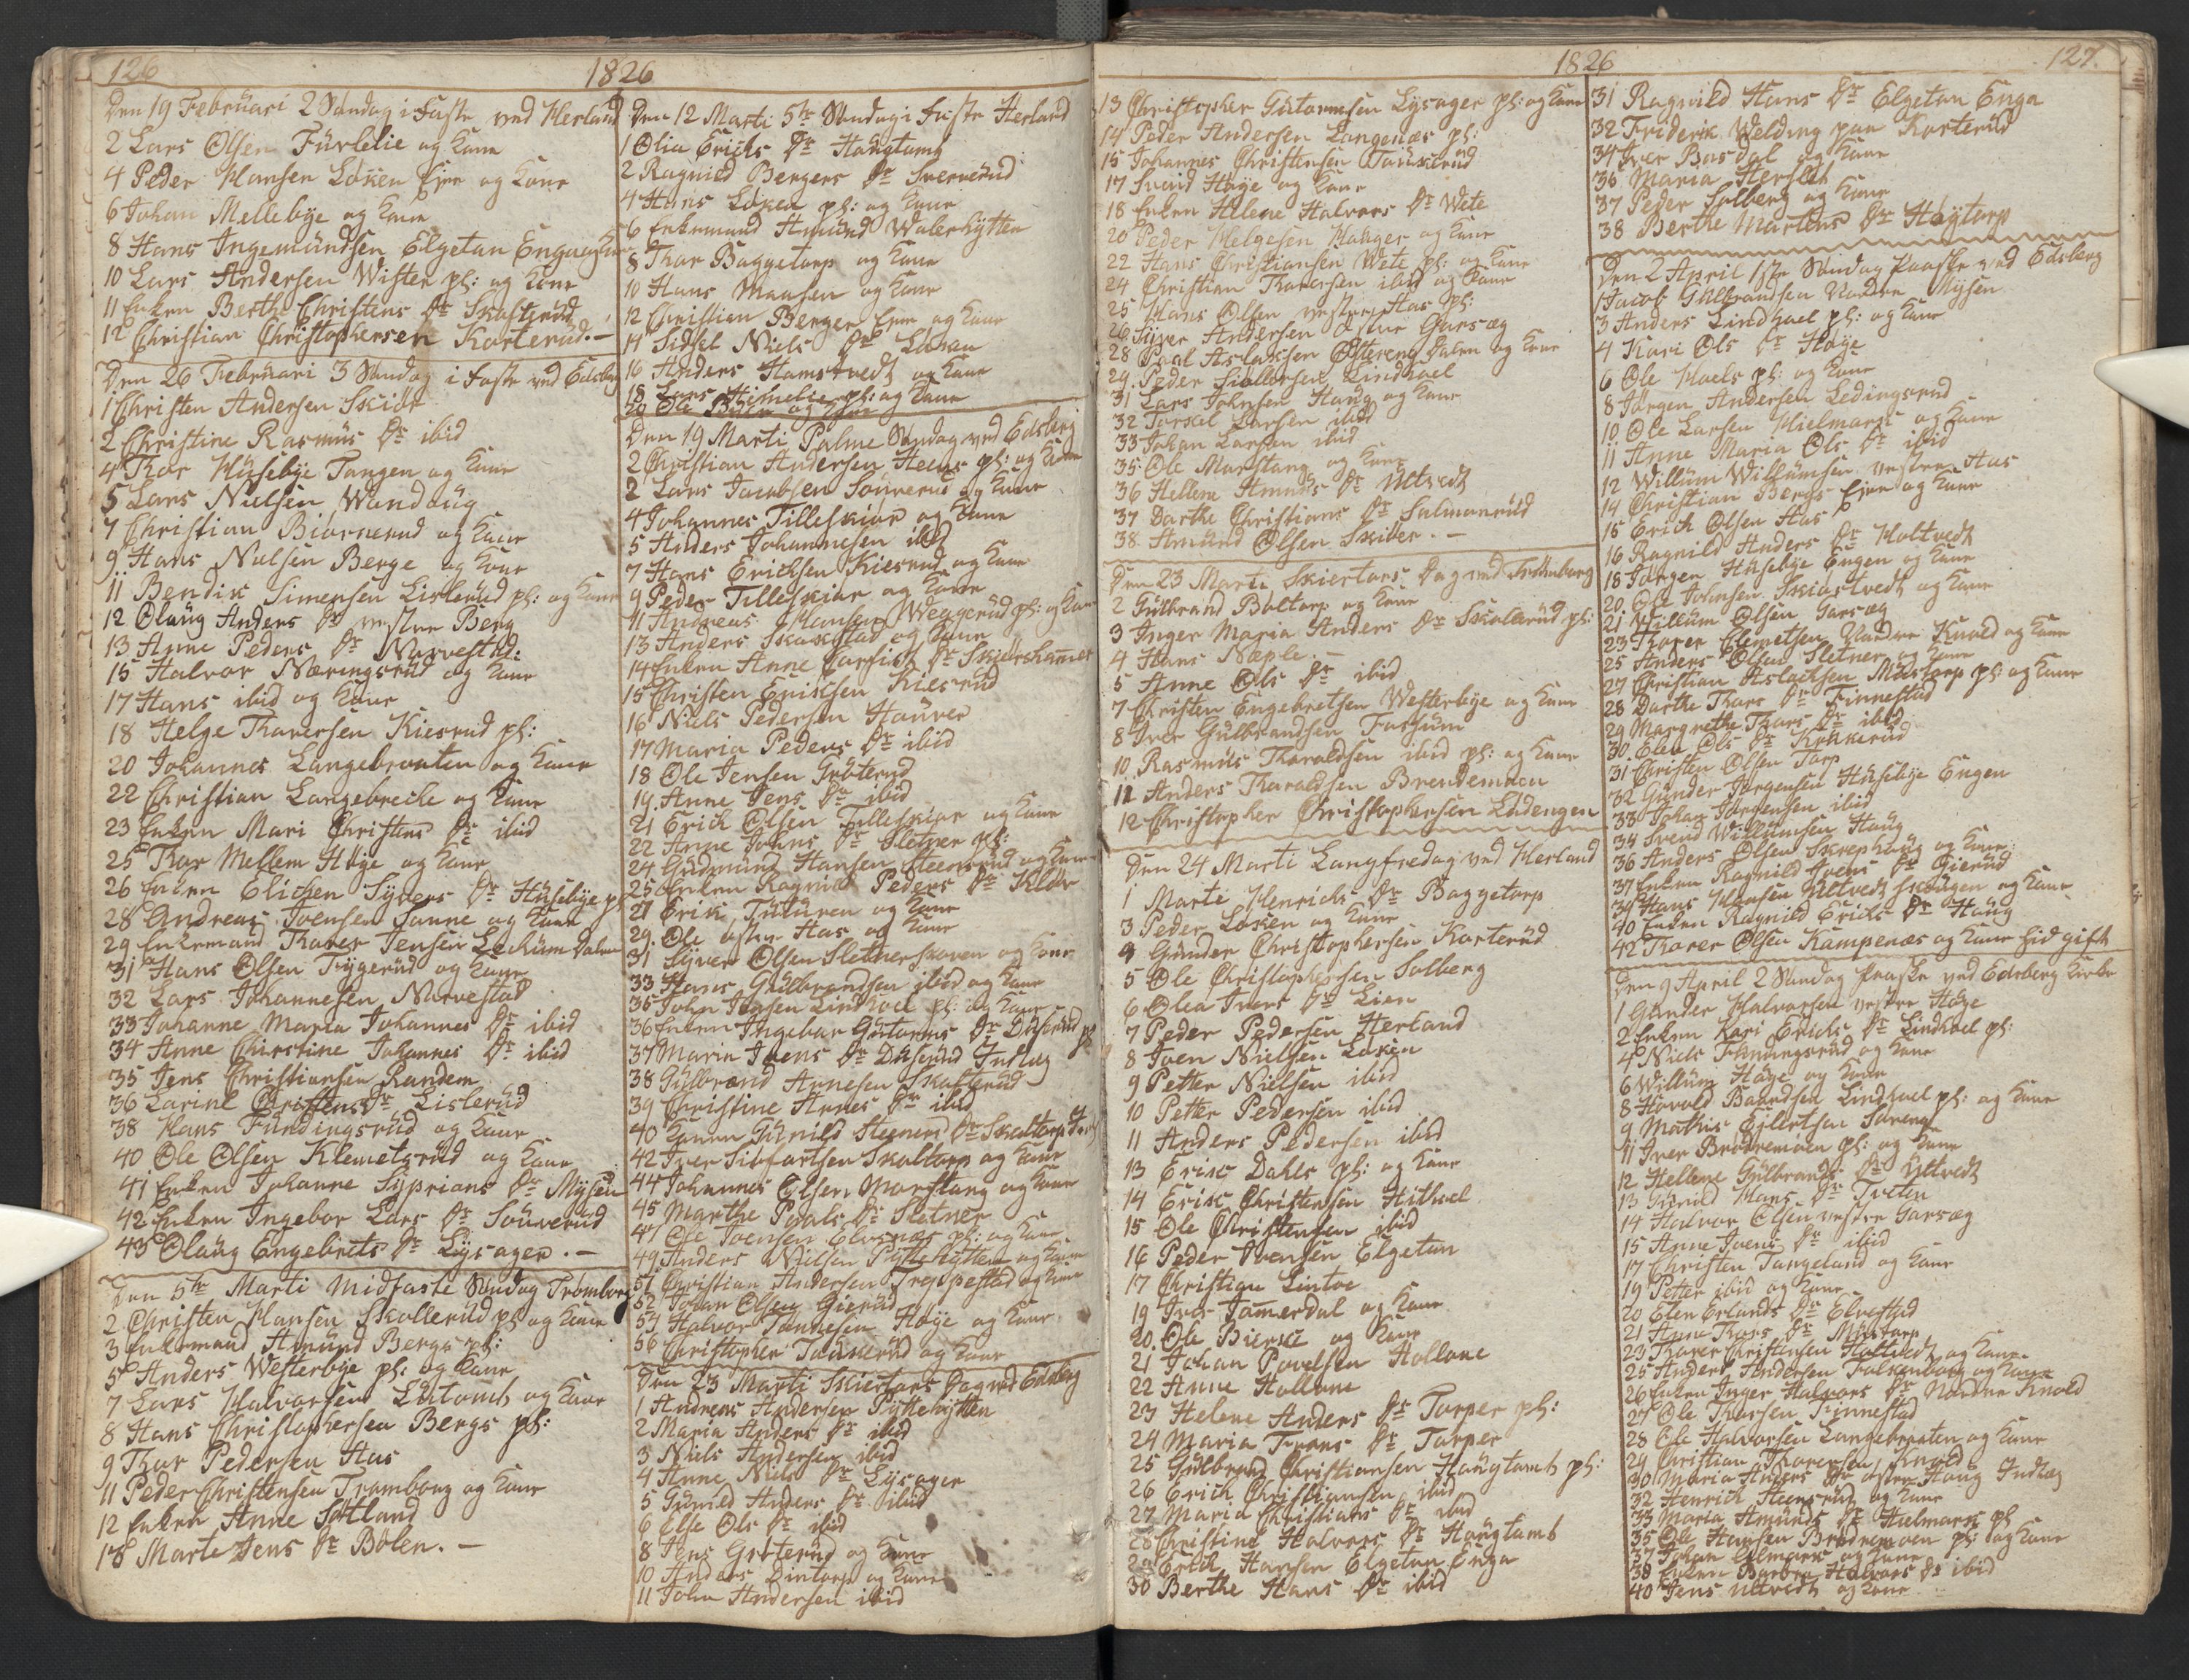 126
1826
Den 19 Februari 2 Søndag i Faste ved Herland
2 Lars Olsen Furlelie og Kone
4 Peder Hansen Løken Ejer og Kone
6 Johan Mellebye og Kone
8 Hans Ingemundsen Elgetun Enga og Kone
10 Lars Andersen Wister pl: og Kone
11 Enken Berthe Christens Dr Skofterud
12 Christian Christophersen Korterud.-
Den 26 Februari 3 Søndag i Faste ved Edsberg
1 Christen Andersen Skiør
2 Christine Rasmus Dr ibid
4 Thor Husebye Tangen og Kone
5 Lars Nielsen Wandaug
7 Christian Biørnerud og Kone
9 Hans Nielsen Berge og Kone
11 Bendix Simensen Lislerud pl: og Kone
12 Olaug Anders Dr vestre Berg
13 Anne Peders Dr Narvestad:
15 Halvor Næringsrud og Kone
17 Hans ibid og Kone
18 Helge Thoresen Kiesrud pl:
20 Johannes Langebraaten og Kone
22 Christian Langebrecke og Kone
23 Enken Mari Christens Dr ibid
25 Thor Mellem Høje og Kone
26 Enken Elichen Syvers Dr Husebye pl
28 Andreas Joensen Tonne og Kone
29 Enkemand Thorer Jensen Leckum Dalen
31 Hans Olsen Trygerud og Kone
32 Lars Johannesen Narvestad
33 Johanne Maria Johannes Dr ibid
34 Anne Chirstine Johannes Dr ibid
35 Jens Christiansen Randem
36 Larine Christens Dr Lislerud
38 Hans Fundingsrud og Kone
40 Ole Olsen Klemetsrud og Kone
41 Enken Johanne Syprians Dr Mysen
42 Enken Ingebor Lars Dr Souverud
43 Olaug Engebrets Dr Lysager.-
Den 5te Marti Midfaste Søndag Trømborg
2 Christen Hansen Skallerud pl og Kone
3 Enkemand Amund Bergs pl:
5 Anders Westerbye pl: og Kone
7 Lars Halvorsen Lutomb og Kone
8 Hans Christophersen Bergs pl:
9 Thor Pedersen Aas
11 Peder Christensen Tromborg og Kone
12 Enken Anne Søtland
13 Marte Jens Dr Bølen.-
Den 12 Marti 5te Søndag i Faste Herland
1 Olia Erichs Dr Haugtumb
2 Ragnild Bergers Dr Sververud
4 Hans Løken pl: og Kone
6 Enkemand Amund Walerhytten
8 Thor Baggetorp og Kone
10 Hans Monsen og Kone
12 Christian Berger Ejer og Kone
14 Sidsel Niels Dr Løken
16 Anders Hamstvedt og Kone
18 Lars Himelse pl: og Kone
20 Ole Byen og Kone
Den 19 Marti Palme Søndag ved Edsberg
2 Christian Andersen Heens pl: og Kone
2 Lars Jacobsen Souverud og Kone
4 Johannes Tilleskiør og Kone
5 Anders Johannesen ibid
7 Hans Erichsen Kiesrud og Kone
9 Peder Tilleskiør og Kone
11 Andreas Hansen Weggerud pl: og Kone
13 Anders Skaxestad og Kone
14 Enken Anne Dr Skiershamer
15 Christen Eriksen Kiesrud
16 Niels Pedersen Haurer
17 Maria Peders Dr ibid
18 Ole Jensen Grøterud
19 Anne Jens Dr ibid
21 Erich Olsen Tilleskiør og Kone
22 Anne Johns Dr Sletner pl:
24 Gudmund Hansen Heensrud og Kone
25 Enken Ragnild Peders Dr Kløv
27 Erik Tuturen og Kone
29. Ole østre Aas og Kone
31 Syver Olsen Sletnerskoven og Kone
33 Hans Gulbrandsen ibid og Kone
35 John Jensen Lindhoel pl: og Kone
36 Enken Ingebor Gutorms Dr Duserud pl
37 Maria Joens Dr Duserud Indlæg
38 Gulbrand Arnesen Skofterud
39 Christine Arnes Dr ibid
40 Konen Gunild Steners Dr Skaltorp
42 Iver Sivfartsen Skaltorp og Kone
44 Johannes Olsen Morstang og Kone
45 Marthe Poals Dr Sletner
47 Ole Joensen Elvenæs pl: og Kone
49 Anders Nielsen Pyttehytten og Kone
51 Christian Andersen Treppestad og Kone
52 Johan Olsen Gierud
54 Halvor Tønnesen Høye og Kone
56 Christopher Tauserud og Kone
Den 23 Marti Skiertors Dag ved Edsberg
1 Andreas Andersen Pyttehytten
2 Maria Anders Dr ibid
3 Niels Andersen ibid
4 Anne Niels Dr Lysager
5 Gunild Anders Dr ibid
6 Else Ols Dr ibid
8 Jens Grøterud og Kone
10 Anders Lintorp og Kone
11 John Andersen ibid
1826
127.
13 Christopher Gutormsen Lysager pl: og Kone
14 Peder Andersen Langenæs pl:
15 Johannes Christensen Tauserud
17 Svend Høye og Kone
18 Enken Helene Halvors Dr Wete
20 Peder Helgesen Hauger og Kone
22 Hans Christiansen Wete pl: og Kone
24 Christian Thoresen ibid og Kone
25 Hans Olsen vestre Aas pl:
26 Syver Andersen østre Garsæg
28 Paal Aslaksen Østereng Dalen og Kone
29. Peder Lindhoel
31 Lars Johnsen Haug og Kone
32 Torkel Larsen ibid
33 Johan Larsen ibid
35. Ole Morstang og Kone
36 Hellene Amunds Dr Ultvedt
37 Dorthe Christians Dr Salmonrud
38. Amund Olsen Skiber.-
Den 23 Marti Skiertors Dag ved Trømborg
2 Gulbrand Boltorp og Kone
3 Inger Maria Anders Dr Skallerud pl:
4 Hans Næple.-
5 Anne Ols Dr ibid
7 Christen Engebretsen Westerbye og Kone
8 Iver Gulbrandsen Fossum
10 Rasmus Thoraldsen ibid pl: og Kone
11 Anders Thoraldsen Brendemoen
12 Christopher Christophersen Ludengen
Den 24 Marti Langfredag ved Herland
1 Marte Henrichs Dr Baggetorp
3 Peder Løsken og Kone
4 Gunder Christophersen Korterud
5 Ole Christophersen Solberg
6 Olea Ivers Dr Lien
7 Peder Pedersen Herland
8 Joen Nielsen Løken
9 Petter Nielsen ibid
10 Petter Pedersen ibid
11 Anders Pedersen ibid
13 Erik Dahls pl: og Kone
14 Erik Christensen Huthoel
15 Ole Christensen ibid
16 Peder Ivensen Elgetun
17 Christian Lintoe
19 Iver Jamerdal og Kone
20. Ole Bierke og Kone
21 Johan Povelsen Hollone
22 Anne Hollone
23 Helene Anders Dr Torper pl:
24 Maria Frans Dr Torper
25 Gulbrand Christiansen Haugtomb pl:
26 Erich Christiansen ibid
27 Maria Christians Dr ibid
28 Christine Halvors Dr Haugtomb
29 Erich Hansen Elgetun Enga
30 Berthe Hans Dr ibid
31 Ragnild Hans Dr Elgetun Enga
32 Friderik Welding paa Korterud
34 Iver Basdal og Kone
36 Maria Hersleth
37 Peder Solberg og Kone
38 Berthe Martens Dr Høytorp
Den 2 April 1ste Søndag Paaske ved Edsberg
1 Jacob Gulbrandsen Nordre Mysen
3 Anders Lindhoel pl: og Kone
4 Kari Ols Dr Høye
6 Ole Hoels pl: og Kone
8 Jørgen Andersen Ledingsrud
10 Ole Larsen Hielmark og Kone
11 Anne Maria Ols Dr ibid
12 Willum Willumsen vestre Aas
14 Christian Bergs Ejer og Kone
15 Erich Olsen Aas
16 Ragnild Anders Dr Holtvedt
18 Jørgen Husebye Engen og Kone
20. Ole Johnsen Skiøstvedt og Kone
21 Willum Olsen Garsæg
23 Thorer Clemetsen Nordre Knold og Kone
25 Anders Olsen Sletner og Kone
27 Christian Aslachsen Mustorp pl: og Kone
28 Dorthe Thors Dr Finnestad
29 Margrethe Thors Dr ibid
30. Elen Ols Dr Krokerud
31 Christen Olsen Torp
32 Gunder Jørgensen Husebye Engen
33 Johan Jørgensen ibid
34 Svend Willumsen Haug
36 Anders Olsen Skrephaug og Kone.
37 Enken Ragnild Joens Dr Gierud
39 Hans Hansen Ultvedt Skougen og Kone
40 Enken Ragnild Erichs Dr Haug
42 Thorer Olsen Kampenæs og Kone hid gift
Den 9 April 2 Søndag Paaske ved Edsberg Kirke
1 Gunder Halvorsen vestre Høye
2 Enken Kari Erichs Dr Lindhoel pl:
4 Niels Fundingsrud og Kone
6 Willum Høye og Kone
8 Hovold Baardsen Lindhoel pl: og Kone
9 Mathis Eilertsen
11 Iver Brødremoen pl: og Kone
12 Hellene Gulbrands Dr Ultvedt
13 Gunild Hans Dr Tveten
14 Halvor Olsen vestre Garsæg
15 Anne Joens Dr ibid
17 Christen Tangelund og Kone
19 Petter ibid og Kone
20 Elen Erlands Dr Elvestad
21 Anne Thors Dr Mustorp
23 Thorer Christensen Holtvedt og Kone
25 Anders Andersen Falkenborg og Kone
26 Enken Inger Halvors Dr Nordre Knold
27 Ole Thorsen Finnestad
28 Ole Halvorsen Langebraaten og Kone
29 Christian Thoresen Knold
30 Maria Anders Dr østre Haug Indlæg
32 Henrich Heensrud og Kone
33 Maria Amunds Dr Hielmark pl
35 Ole Hansen Brødremoen pl: og Kone
37 Johan Hielmark og Kone
38 Enken Barbra Halvors Dr ibid
40 Jens Ultvedt og Kone